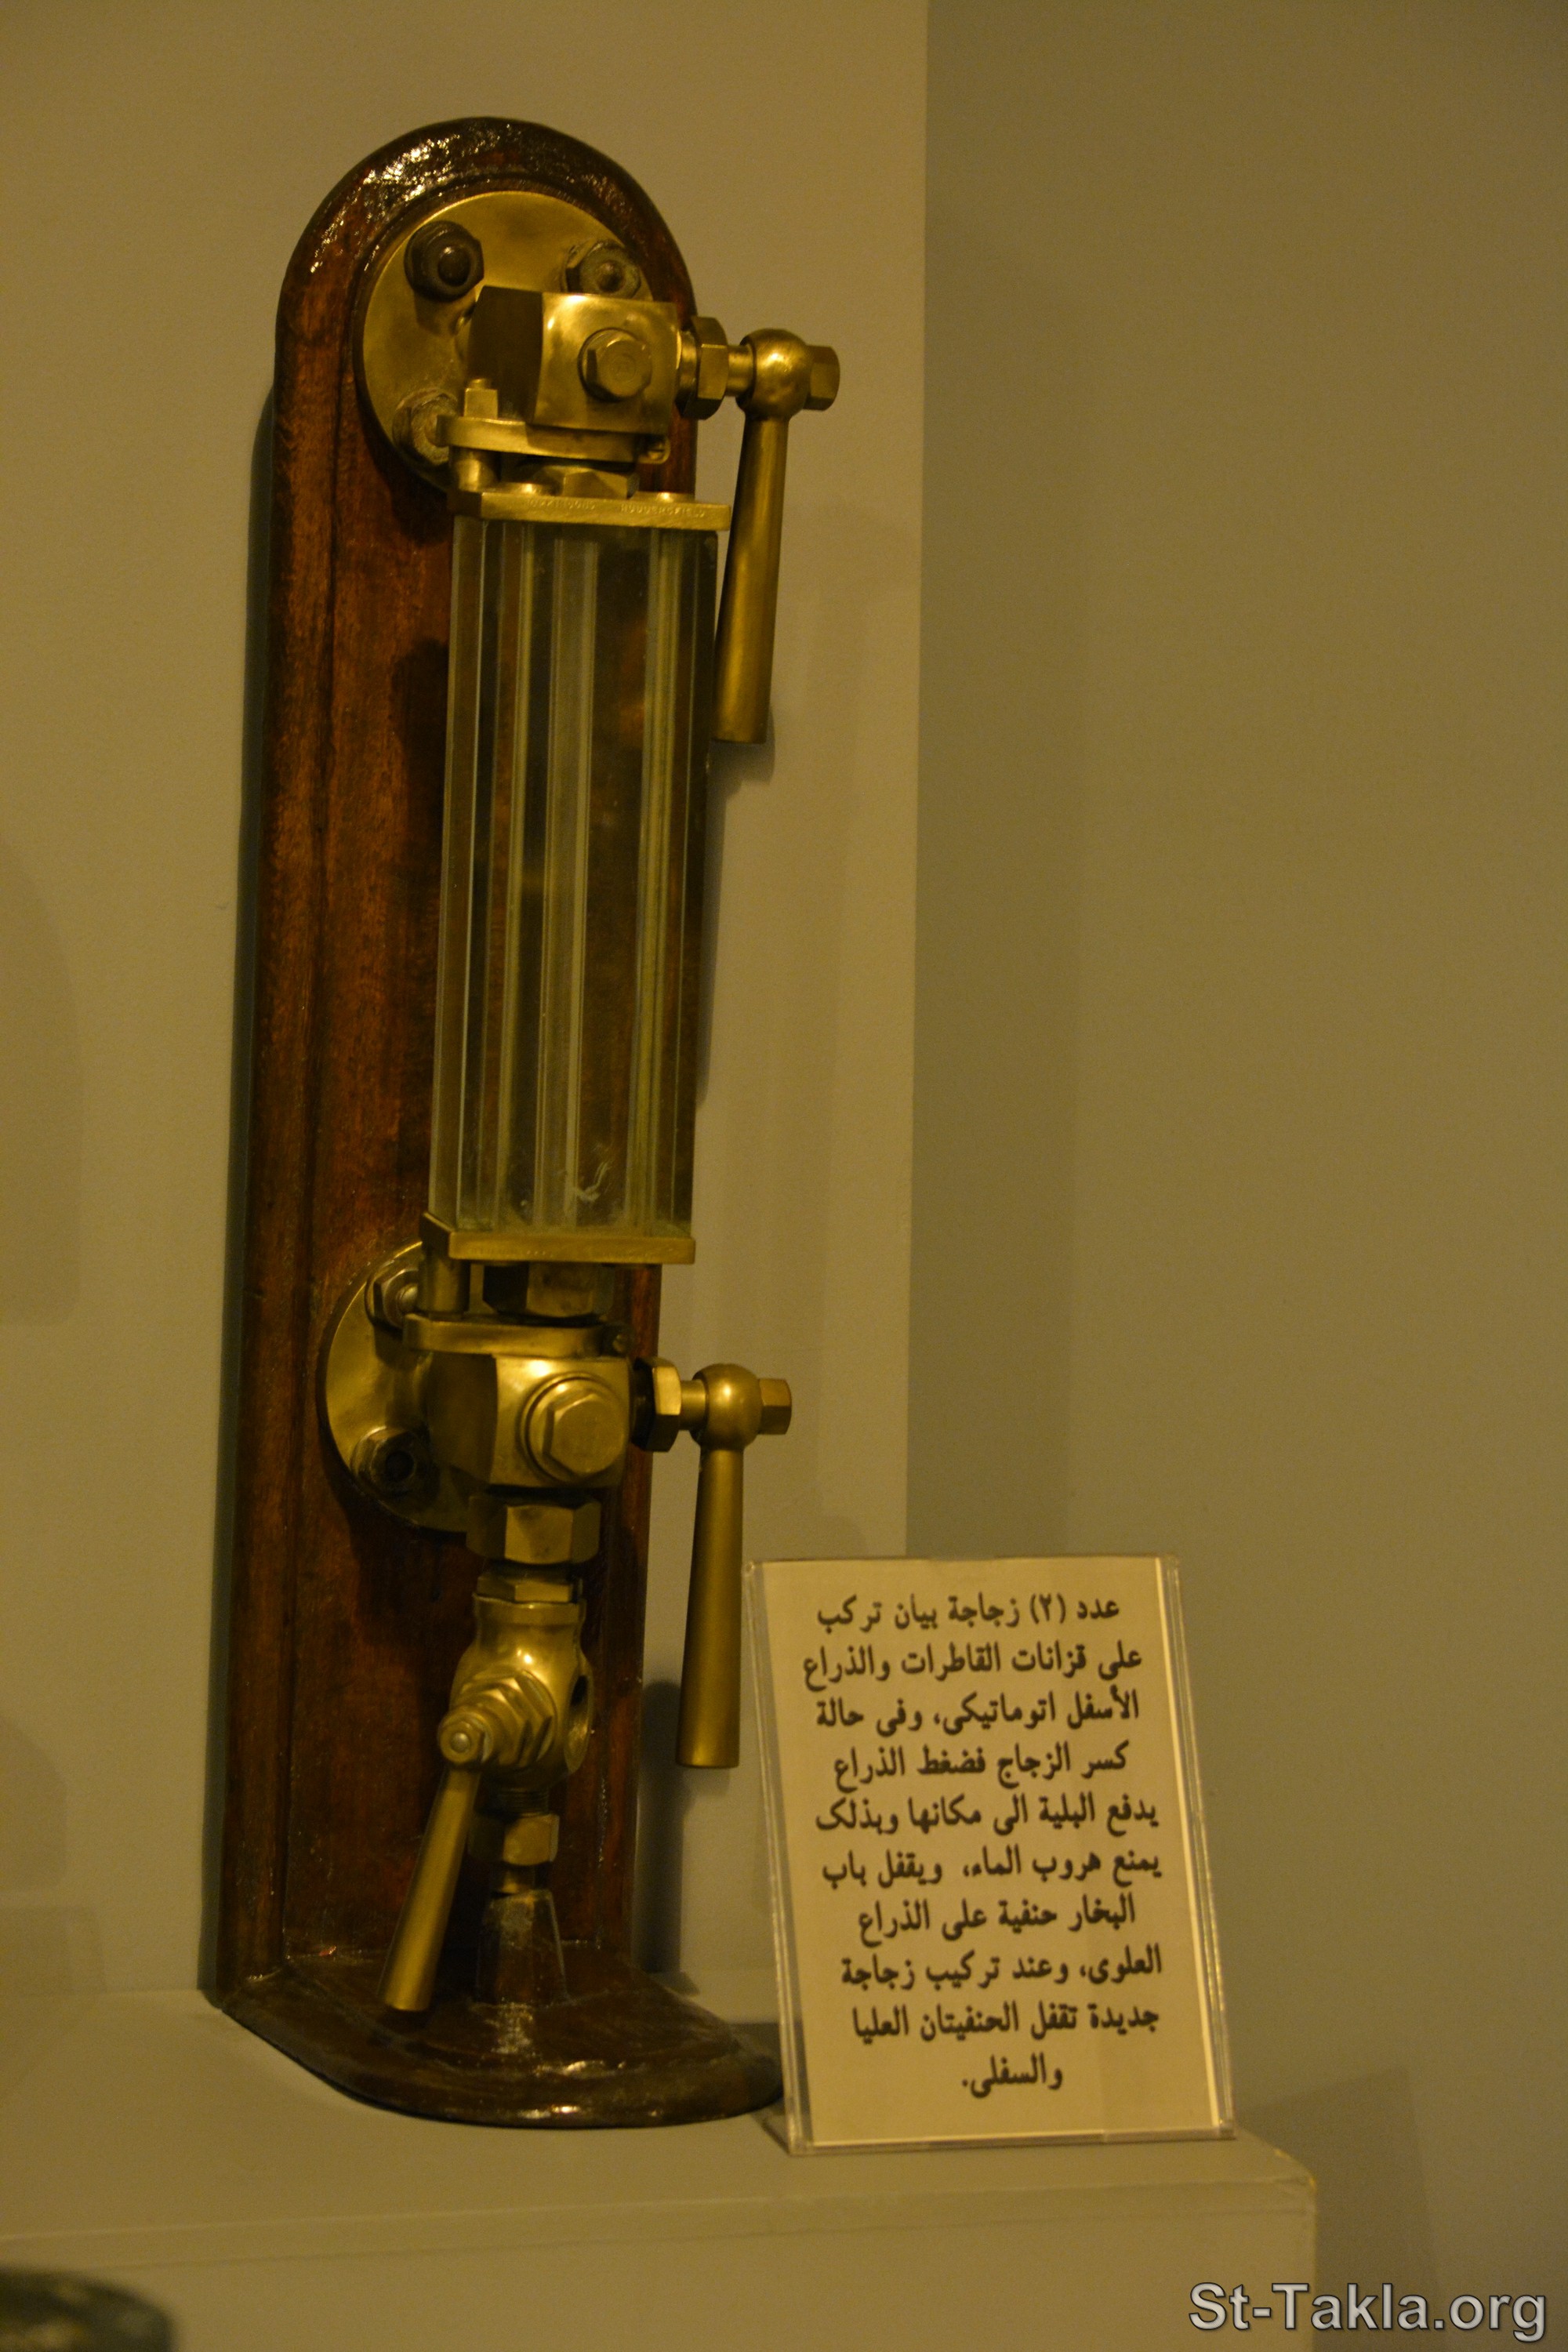 HUDDERSFIELD
عدد (٢) زجاجة بيان تركب
على قزانات القاطرات والذراع
الأسفل اتوماتيكى، وفى حالة
كسر الزجاج فضغط الذراع
يدفع البلية الى مكانها وبذلك
يمنع هروب الماء، ويقفل باب
البخار حنفية على الذراع
العلوى، وعند تركيب زجاجة
جديدة تقفل الحنفيتان العليا
والسفلى.
St-Takla.org